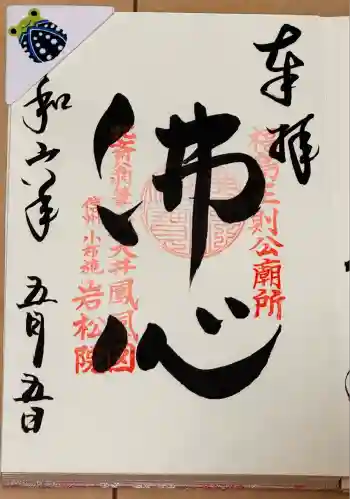 奉拝
福島正則公廟所
佛心
葛飾北斎筆
天井鳳凰図
信州小布施
岩松院
令和六年 五月五日